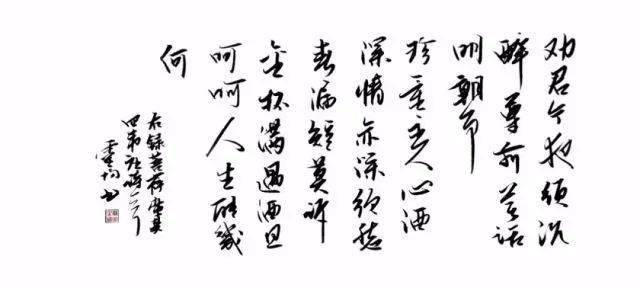 劝君今夜须沉
醉尊前莫话
明朝事
珍重主人心酒
深情亦深须愁
春漏短莫诉
金杯满遇酒且
呵呵人生能几
何
右录菩萨蛮其
四韦庄词一首